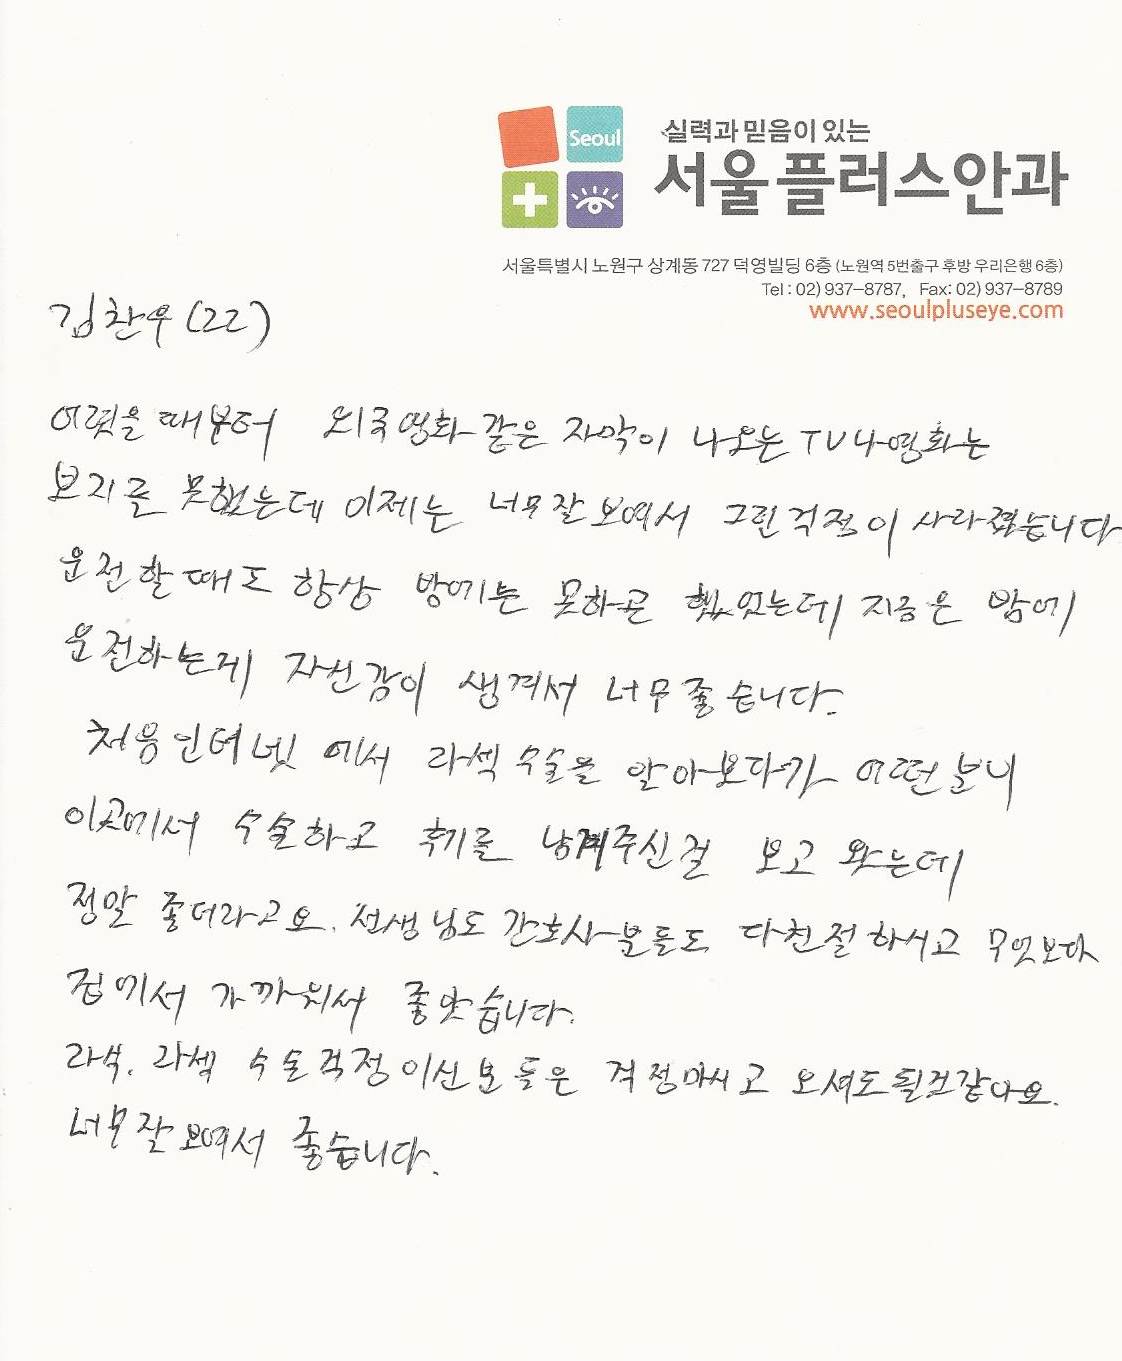 Seoul
실력과 믿음이 있는
서울플러스안과
서울특별시 노원구 상계동 727 덕영빌딩 6층 (노원역 5번출구 후방 우리은행 6층)
Tel : 02) 937-8787, Fax: 02) 937-8789
www.seoulpluseye.com
김찬우 (22)
어렸을 때부터 외국영화 같은 자막이 나오는 TV나 영화는
보지를 못했는데 이제는 너무 잘 보여서 그런 걱정이 사라졌습니다
운전할때도 항상 밤에는 못하곤 했었는데 지금은 밤에
운전하는데 자신감이 생겨서 너무 좋습니다.
처음 인터넷에서 라섹수술을 알아보다가 어떤분이
이곳에서 수술하고 후기를 남겨주신걸 보고 왔는데
정말 좋더라고요. 선생님도 간호사분들도 다 친절하시고 무엇보다
집에서 가까워서 좋았습니다.
라식, 라섹 수술 걱정이신 분들은 걱정마시고 오셔도 될것같아요.
너무 잘 보여서 좋습니다.